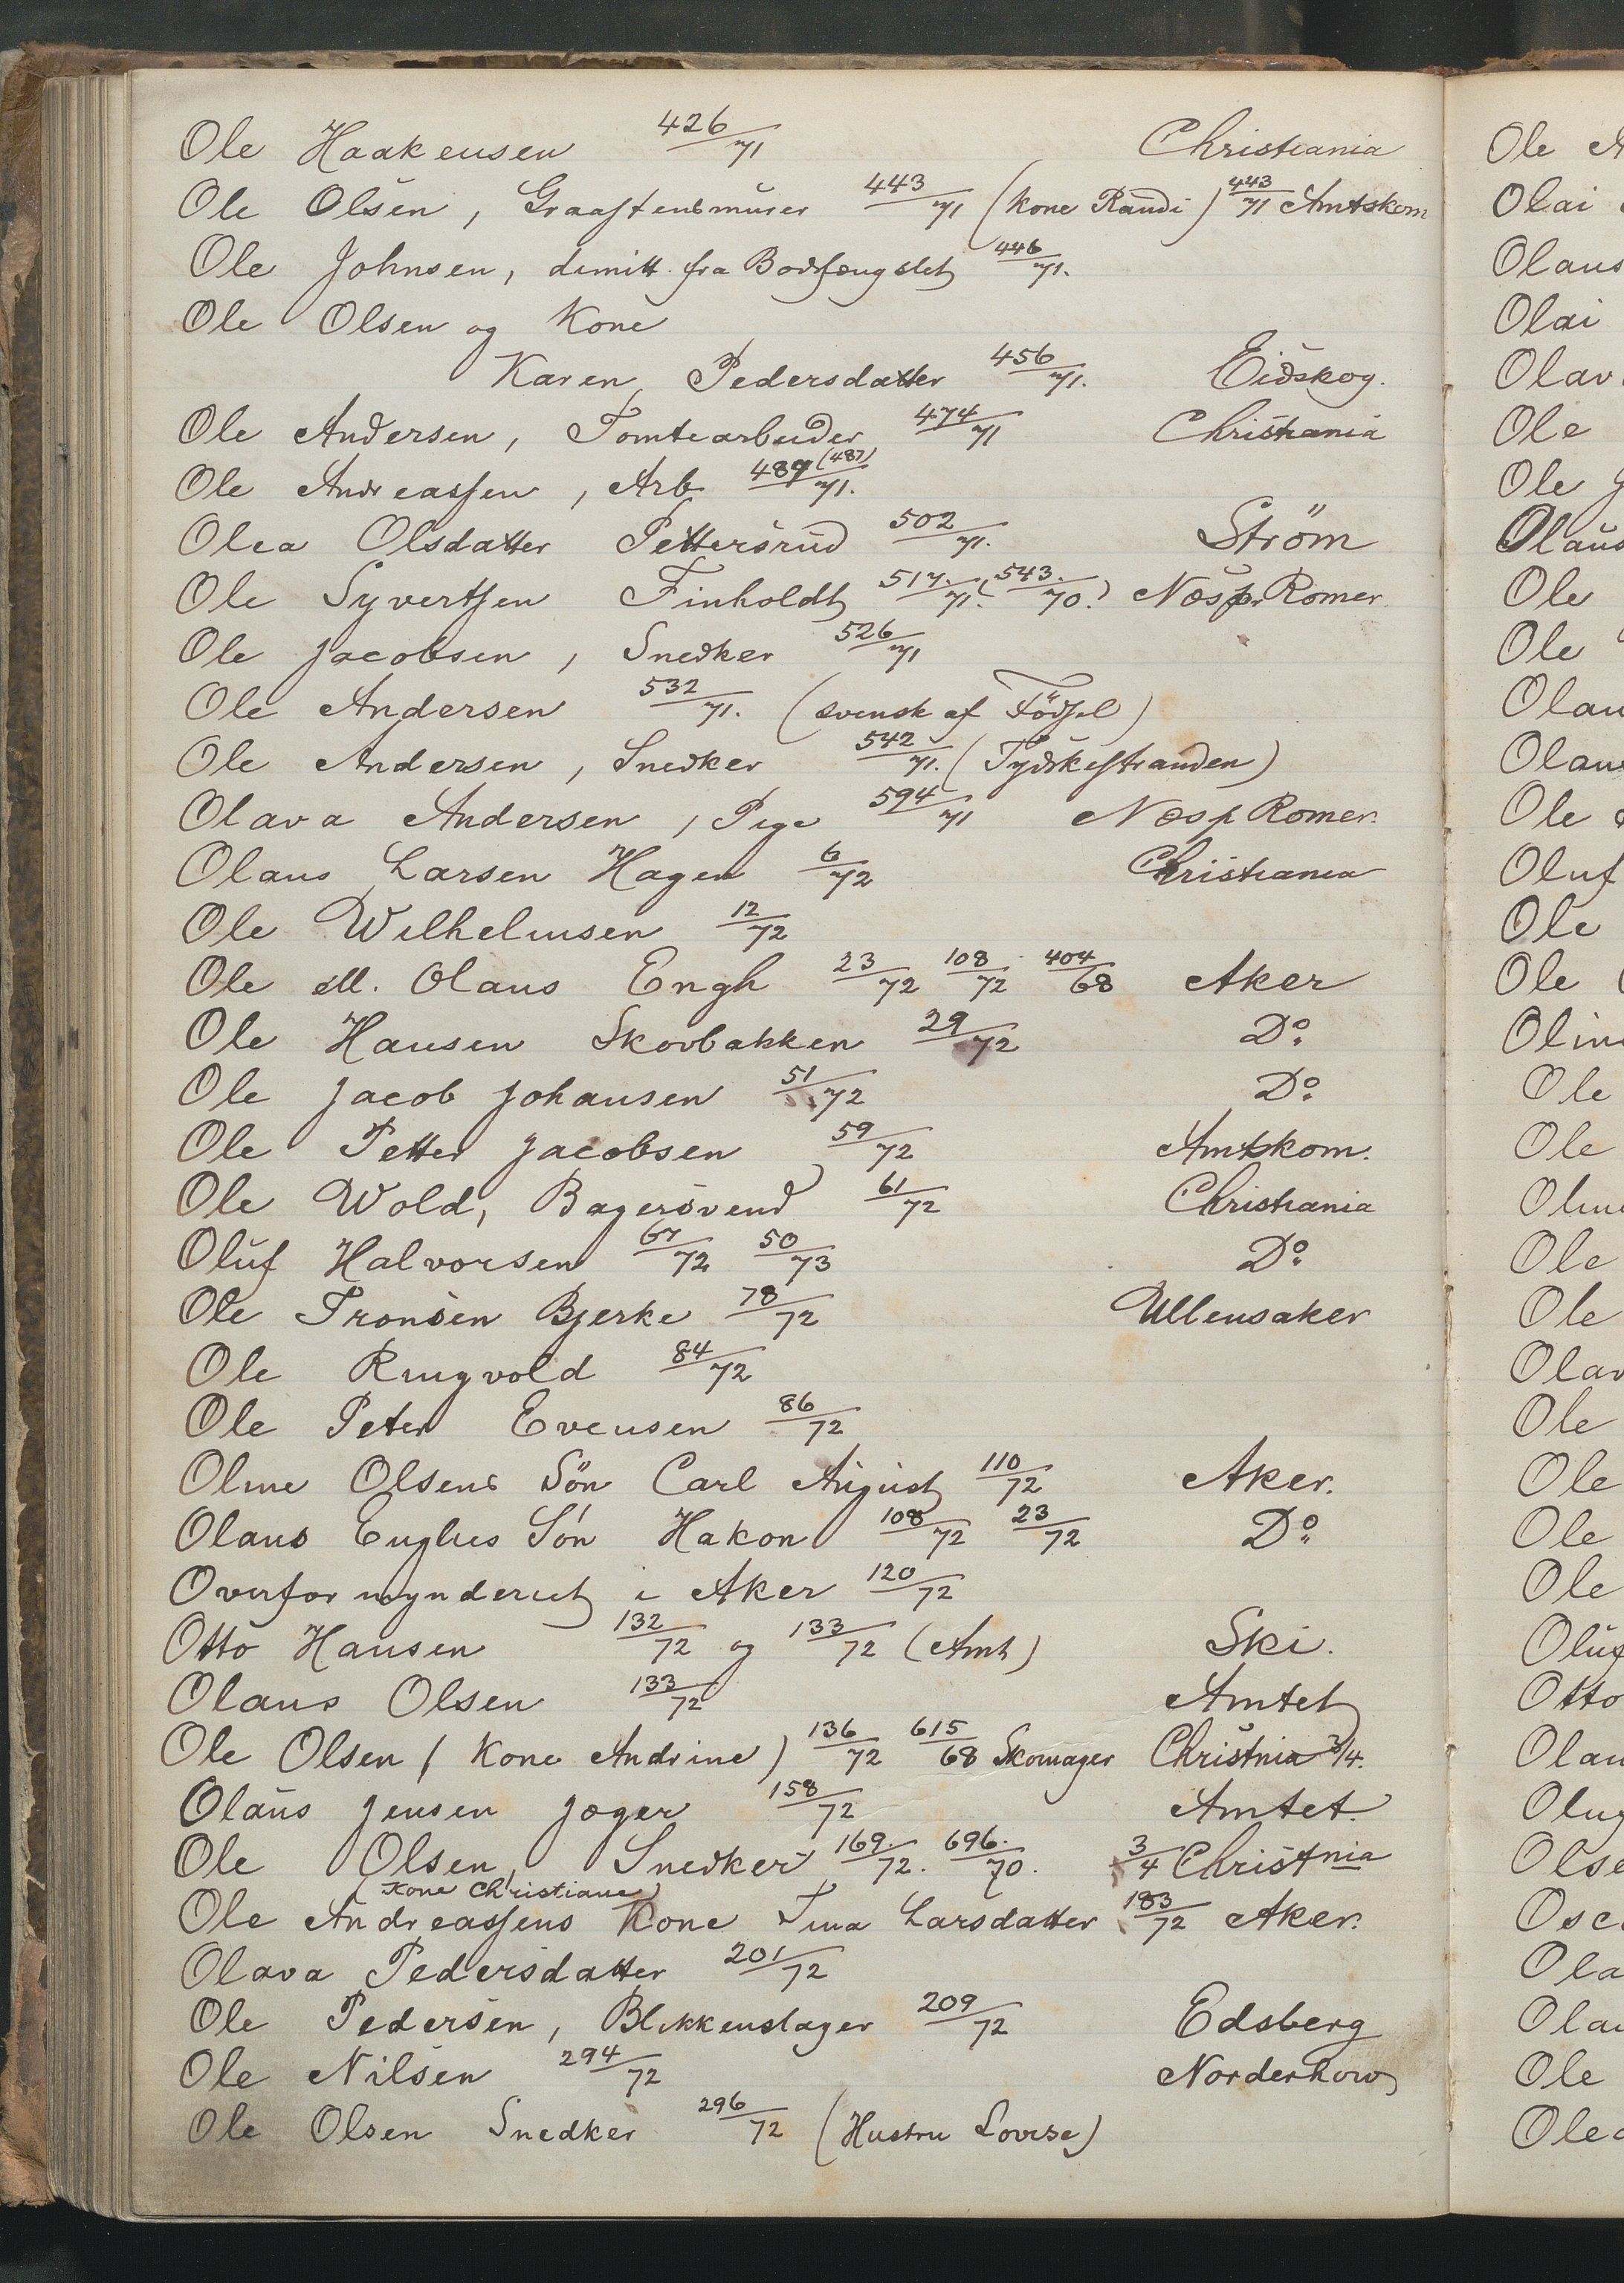 Ole Haakensen 426/71 Christiania
Ole Olsen, Graastensmurer 443/71 (Kone Randi) 443/71 Amtskom
Ole Johnsen, dimitt. fra Bodsfængslet 446/71.
Ole Olsen og Kone
Karen Pedersdatter 456/71. Eidskog.
Ole Andersen, Tomtearbeider 474/71 Christiania
Ole Andreassen, Arb. 487 (487)/71.
Olea Olsdatter Pettersrud 502/71. Ström
Ole Syvertsen Finholdt 517./71. (543./70.) Næs p. Romer.
Ole Jacobsen, Snedker 526/71
Ole Andersen 532/71. (svensk af Födsel)
Ole Andersen, Snedker 542/71. (Tydskestranden)
Olava Andersen, Pige 594/71 Næs p Romer.
Olaus Larsen Hagen 6/72 Christiania
Ole Wilhelmsen 12/72
Ole ell. Olaus Engh 23/72 108/72 404/68 Aker
Ole Hansen Skovbakken 29/72 Do.
Ole Jacob Johansen 51/72 Do.
Ole Petter Jacobsen 59/72 Amtskom.
Ole Wold, Bagersvend 61/72 Christiania
Oluf Halvorsen 67/72 50/73 Do.
Ole Tronsen Bjerke 78/72 Ullensaker
Ole Ringvold 84/72
Ole Peter Evensen 86/72
Oline Olsens Sön Carl August 110/72 Aker.
Olaus Enghs Søn Hakon 108/72 23/72 Do.
Overformynderiet i Aker 120/72
Otto Hansen 132/72 og 133/72 (Amt) Ski.
Olaus Olsen 133/72 Amtet
Ole Olsen (Kone Andrine) 136/72 615/68 Skomager Christnia 3/4.
Olaus Jensen Jæger 158/72 Amtet.
Ole Olsen, Snedker 169./72. 696./70. 3/4 Christnia
(Kone Christiane)
Ole Andreassens Kone Tina Larsdatter 183/72 Aker.
Olava Pedersdatter 201/72
Ole Pedersen, Blikkenslager 209/72 Edsberg
Ole Nilsen 294/72 Norderhow
Ole Olsen Snedker 296/72 (Hustru Lovise)
Ole
Olai
Olaus
Olai
Olav
Ole
Ole
Olaus
Ole
Ole
Olau
Olaus
Ole
Oluf
Ole
Ole
Olin
Ole
Ole
Ole
Ole
Ole
Ole
Ole
Ole
Otto
Olau
Ole